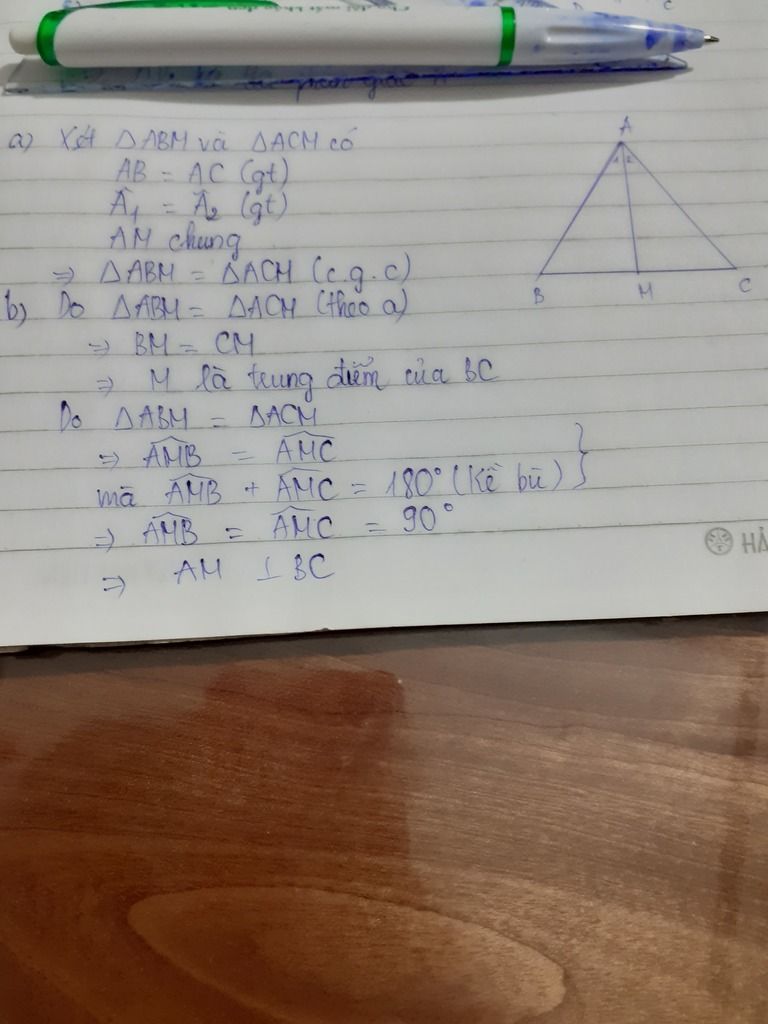 a) Xét ΔABM và ΔACM có
AB = AC (gt)
Â₁ = Â₂ (gt)
AM chung
⇒ ΔABM = ΔACM (c.g.c)
b) Do ΔABM = ΔACM (theo a)
⇒ BM = CM
⇒ M là trung điểm của BC
Do ΔABM = ΔACM
⇒ \widehat{AMB} = \widehat{AMC}
mà \widehat{AMB} + \widehat{AMC} = 180° (kề bù) }
⇒ \widehat{AMB} = \widehat{AMC} = 90°
⇒ AM ⊥ BC
A
1 2
B M C
HẢ